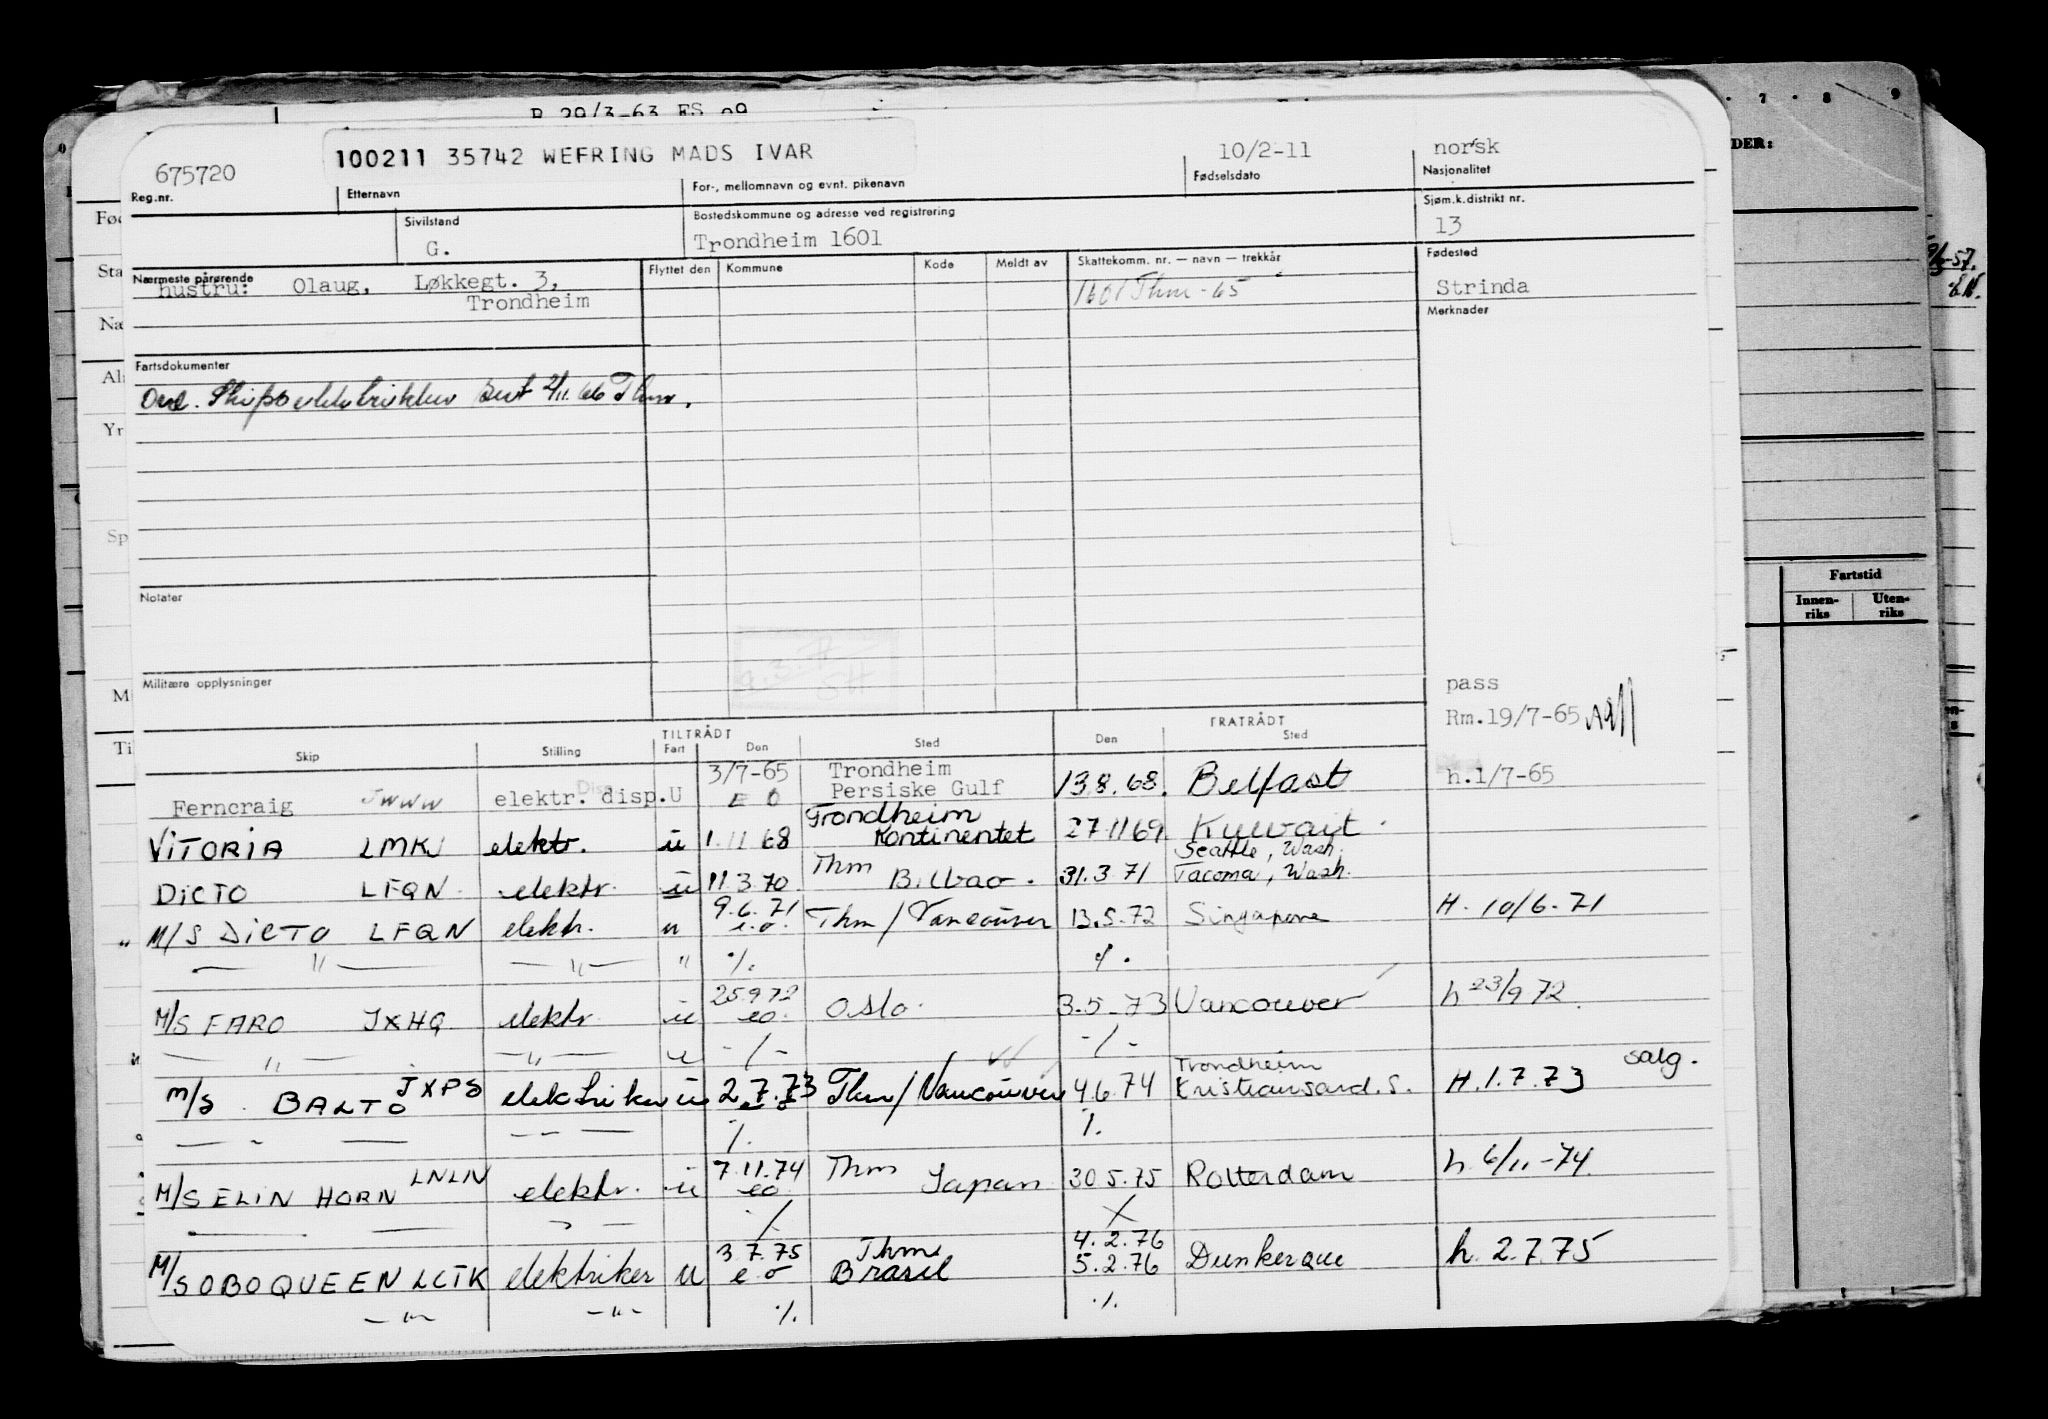 R 29/3-63 ES 09
675720 100211 35742 WEFRING MADS IVAR 10/2-11 norsk
Reg.nr. Etternavn For-, mellomnavn og evnt. pikenavn Fødselsdato Nasjonalitet
Sivilstand Bostedskommune og adresse ved registrering Sjøm.k.distrikt nr.
G. Trondheim 1601 13
Nærmeste pårørende Flyttet den Kommune Kode Meldt av Skattekomm. nr. — navn — trekkår Fødested
hustru: Olaug, Løkkegt. 3, 1601 Thm - 65 Strinda
Trondheim
Merknader
Fartsdokumenter
Ove. Skipselektriker sert 2/11.66 Thm.
Notater
Militære opplysninger
pass
Rm.19/7-65
TILTRÅDT FRATRÅDT
Skip Stilling Fart Den Sted Den Sted
3/7-65 Trondheim
Ferncraig JWWW elektr. disp.U E O Persiske Gulf 13.8.68. Belfast h.1/7-65
Trondheim
VITORIA LMKJ elektr. u 1.11 68 Kontinentet 27 11 69 Kuwait.
Seattle, Wash.
DICTO LFQN elektr. u 11 3 70 Thm Bilbao. 31.3 71 Tacoma, Wash.
9.6.71
" M/S DICTO LFQN elektr. u e.o. Thm/Vancouver 13.5.72 Singapore H. 10/6-71
— " — — " — " %. %.
25 9 72
M/S FARO JXHQ elektr. u eo. Oslo. 3.5.73 Vancouver h 23/9 72.
— " — — " — u -/- -/-
Trondheim salg.
M/S BALTO JXPS elektriker u 2.7.73 e o Thm/Vancouver 4.6.74 Kristiansand.S. H.1.7.73
— " — — - — %. %.
7.11.74
M/S ELIN HORN LNLN elektr. u eo. Thm Japan 30 5.75 Rotterdam h. 6/11-74
3.7.75 Thm 4.2.76
M/S OBO QUEEN LCTK elektriker u e.o Brasil 5.2.76 Dunkerque h. 2.7.75
— " — — " — %. %.
DER:
7 8 9
Fartstid
Innen-riks Uten-riks